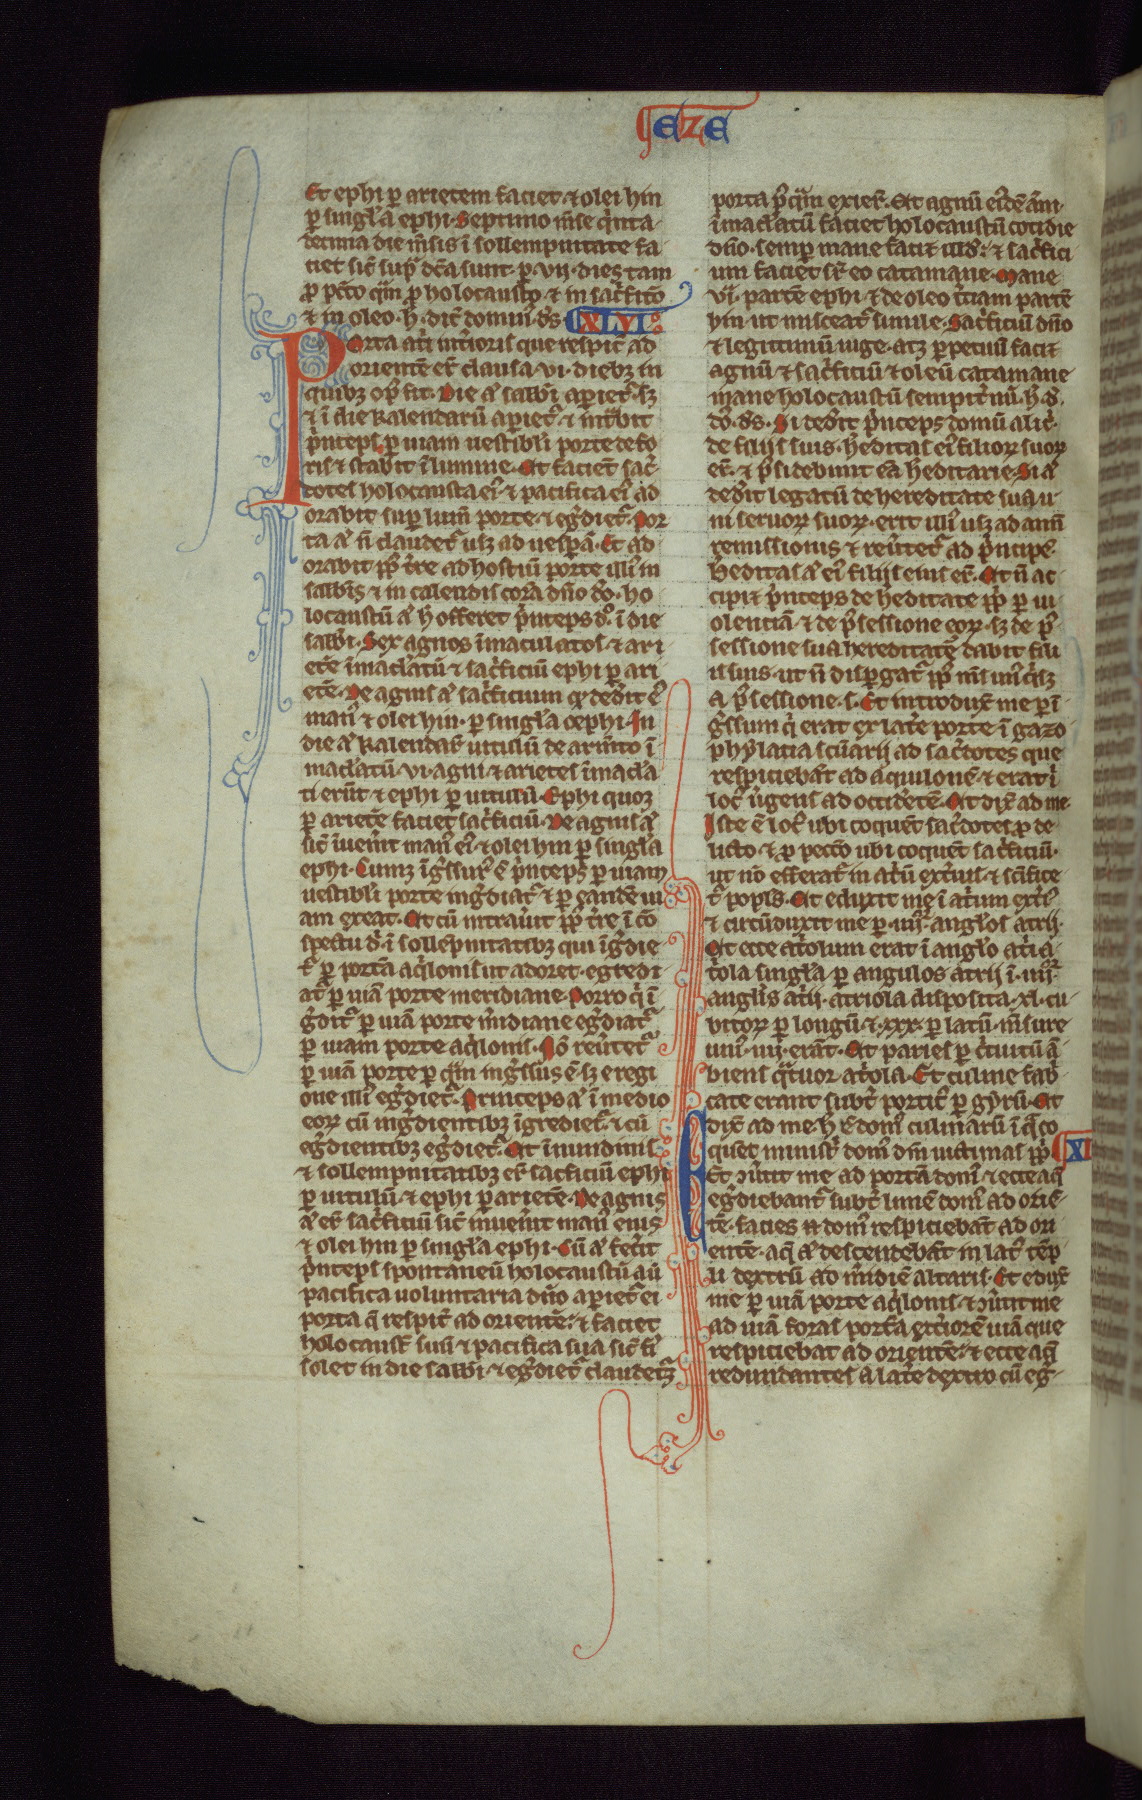 EZE
Et ephi ꝑ arietem faciet ⁊ olei hin
ꝑ singl'a ephi. Septimo m̄se q'nta
decima die m̄sis ī sollempnitate fa
ciet sic̄ sup̄ dc̄a sunt. ꝑ. vij. dies tam
ꝓ pcc̄o q̄m ꝓ holocausto. ⁊ in sac̄ficio
⁊ in oleo. h̄. dic̄ domin' ds. XLVI.
Porta at'i int'ioris que respic̄ ad
orientē er̄ clausa. vi. diebꝫ in
quibꝫ op' fit. Die a' sabb'i apiet̄. sꝫ
⁊ ī die kalendarū apiet̄. ⁊ int'bit
p'nceps ꝑ uiam uestibl'i porte defo
ris ⁊ stabit ī limine. Et faciet sac̄
dotes holocausta ei' ⁊ pacifica ei'. ad
orabit sup lim̄ porte. ⁊ eg'diet̄. Por
ta a' n̄ claudet̄ usꝫ ad uesꝑā. Et ad
orabit pp̄ls t're ad hostiū porte illi' in
sabb'is ⁊ in calendis corā dn̄o do. ho
locaustū a' h̄ offeret p'nceps d'o. ī die
sabb'i. Sex agnos īmaculatos. ⁊ ari
etē īmacl'atū ⁊ sac̄ficiū ephi ꝑ ari
etē. De agnis a' sac̄ficium qd' ded'it ei'
man' ⁊ olei hin. ꝑ singl'a oephi. In
die a' kalendar' uitulū de arm'to ī
macl'atū. vi. agni ⁊ arietes īmacl'a
ti erūt ⁊ ephi ꝑ uitulū. Ephi quoꝫ
ꝑ arietē faciet sac̄ficiū. De agnis a'
sic̄ īuen'it man' ei'. ⁊ olei hin ꝑ singl'a
ephi. Cumꝫ īg'ssur' ē p'nceps ꝑ uiam
uestibl'i porte ing'diat̄ ⁊ ꝑ eandē ui
am exeat. Et cū intrau'it pp̄ls t're ī cō
spectu d'ni ī sollēpnitatibꝫ qui īg'die
t̄ ꝑ portā aq'lonis ut adoret. egredi
at̄ ꝑ uiā porte meridiane. Porro q' ī
g'dit̄ ꝑ uiā porte m'idiane eg'diat̄
ꝑ uiam porte aq'lonis. Nō reu'tet̄
ꝑ uiā porte ꝑ q̄m ing'ssus ē. sꝫ e regi
one illi' eg'diet̄. Princeps a' ī medio
eorꝝ cū ing'dientibꝫ īgrediet̄. ⁊ cū
eg'dientibꝫ eg'diet̄. Et ī nundinis
⁊ sollempnitatibꝫ er̄ sac̄ficiū ephi
ꝑ uitulū. ⁊ ephi ꝑ arietē. De agnis
a' er̄ sac̄ficiū sic̄ inuen'it man' eius
⁊ olei hin ꝑ singl'a ephi. Cū a' fec'it
p'nceps spontaneū holocaustū aū
pacifica uoluntaria dn̄o apiet̄ ei
porta q̄ respic̄ ad orientē. ⁊ faciet
holocaust' suū ⁊ pacifica sua sic̄ fi'
solet in die sabb'i. ⁊ eg'diet̄ claudet̄ꝫ
porta p' q̄m exier̄. Et agnū ei'dē āni
īmacl'atū faciet holocaustū cotidie
dn̄o. semp mane faciet illd'. ⁊ sac̄fici
um faciet sr̄ eo catamane. Mane
vi. partē ephi. ⁊ de oleo t'ciam partē
hin. ut misceat̄ simile. Sac̄ficiū dn̄o
⁊ legitimū iuge. atꝫ ꝑpetuū faciet
agnū ⁊ sac̄ficiū ⁊ oleū catamane
mane holocaustū sempit'nū. h̄. d.
do. ds. Si ded'it p'nceps domū aliq̄
de filiis suis. h'editas ei' filiorꝝ suorꝝ
er̄. ⁊ p'sidebunt eā h'editarie. Si a'
ded'it legatū de hereditate sua u
ni seruorꝝ suorꝝ. erit illi' usꝫ ad ann̄
remissionis ⁊ reu'tet̄ ad p'ncipē.
H'editas a' ei' filiis eius er̄. Et n̄ ac
cipiet p'nceps de h'editate pp̄li ꝑ ui
olentiā. ⁊ de p'sessione eorꝝ. sꝫ de p'
sessione sua hereditatē dabit fili
is suis. ut n̄ dispergat̄ pp̄ls m̄s un'q'sꝫ
a p'sessione. s. Et introdux̄ me ꝑ ī
g'ssum q' erat ex lat'e porte ī gazo
phylacia sc̄uarii ad sac̄dotes que
respiciebāt ad aquilonē. ⁊ erat ī
loc' u'gens ad occid'etē. Et dix̄ ad me
Iste ē loc' ubi coquēt sac̄dotes ꝓ de
licto. ⁊ ꝓ pecc̄o ubi coquent sac̄ficiū.
ut nō efferāt in at'ū ext'ius. ⁊ sc̄ifice
t̄ popl's. Et eduxit me ī at'ium exti'
⁊ circūduxit me ꝑ. iiij. angl'os atrij.
Et ecce at'olum erat ī angl'o at'ij a
t'ola singl'a ꝑ angulos atrij ī. iiij
angl'is at'ij. atriola disposita. xl. cu
bitorꝝ ꝑ longū. ⁊ xxx. ꝑ latū. m̄sure
uni'. iiij. erāt. Et paries ꝑ c̄cuitū ā
biens q̄tuor at'ola. Et culine fab'
cate erant subt' portic' ꝑ gyrū. Et
dix̄ ad me. h̄ ē dom' culinarū ī q̄ co
quet minist' dom' dn̄i uictimas pp̄li. XL
Et ↄu'tit me ad portā dom'. ⁊ ecce aq̄
eg'diebant̄ subt' limē dom' ad oriē
tē. facies n̄ dom' respiciebāt ad ori
entē. aq̄ a' descendebāt in lat' tēp
li dextrū ad m'idiē altaris. Et edux̄
me ꝑ uiā porte aq'lonis. ⁊ ↄu'tit me
ad uiā foras portā ext'iorē uiā que
respiciebat ad orientē. ⁊ ecce aq̄
redundantes a lat'e dextro cū eg'